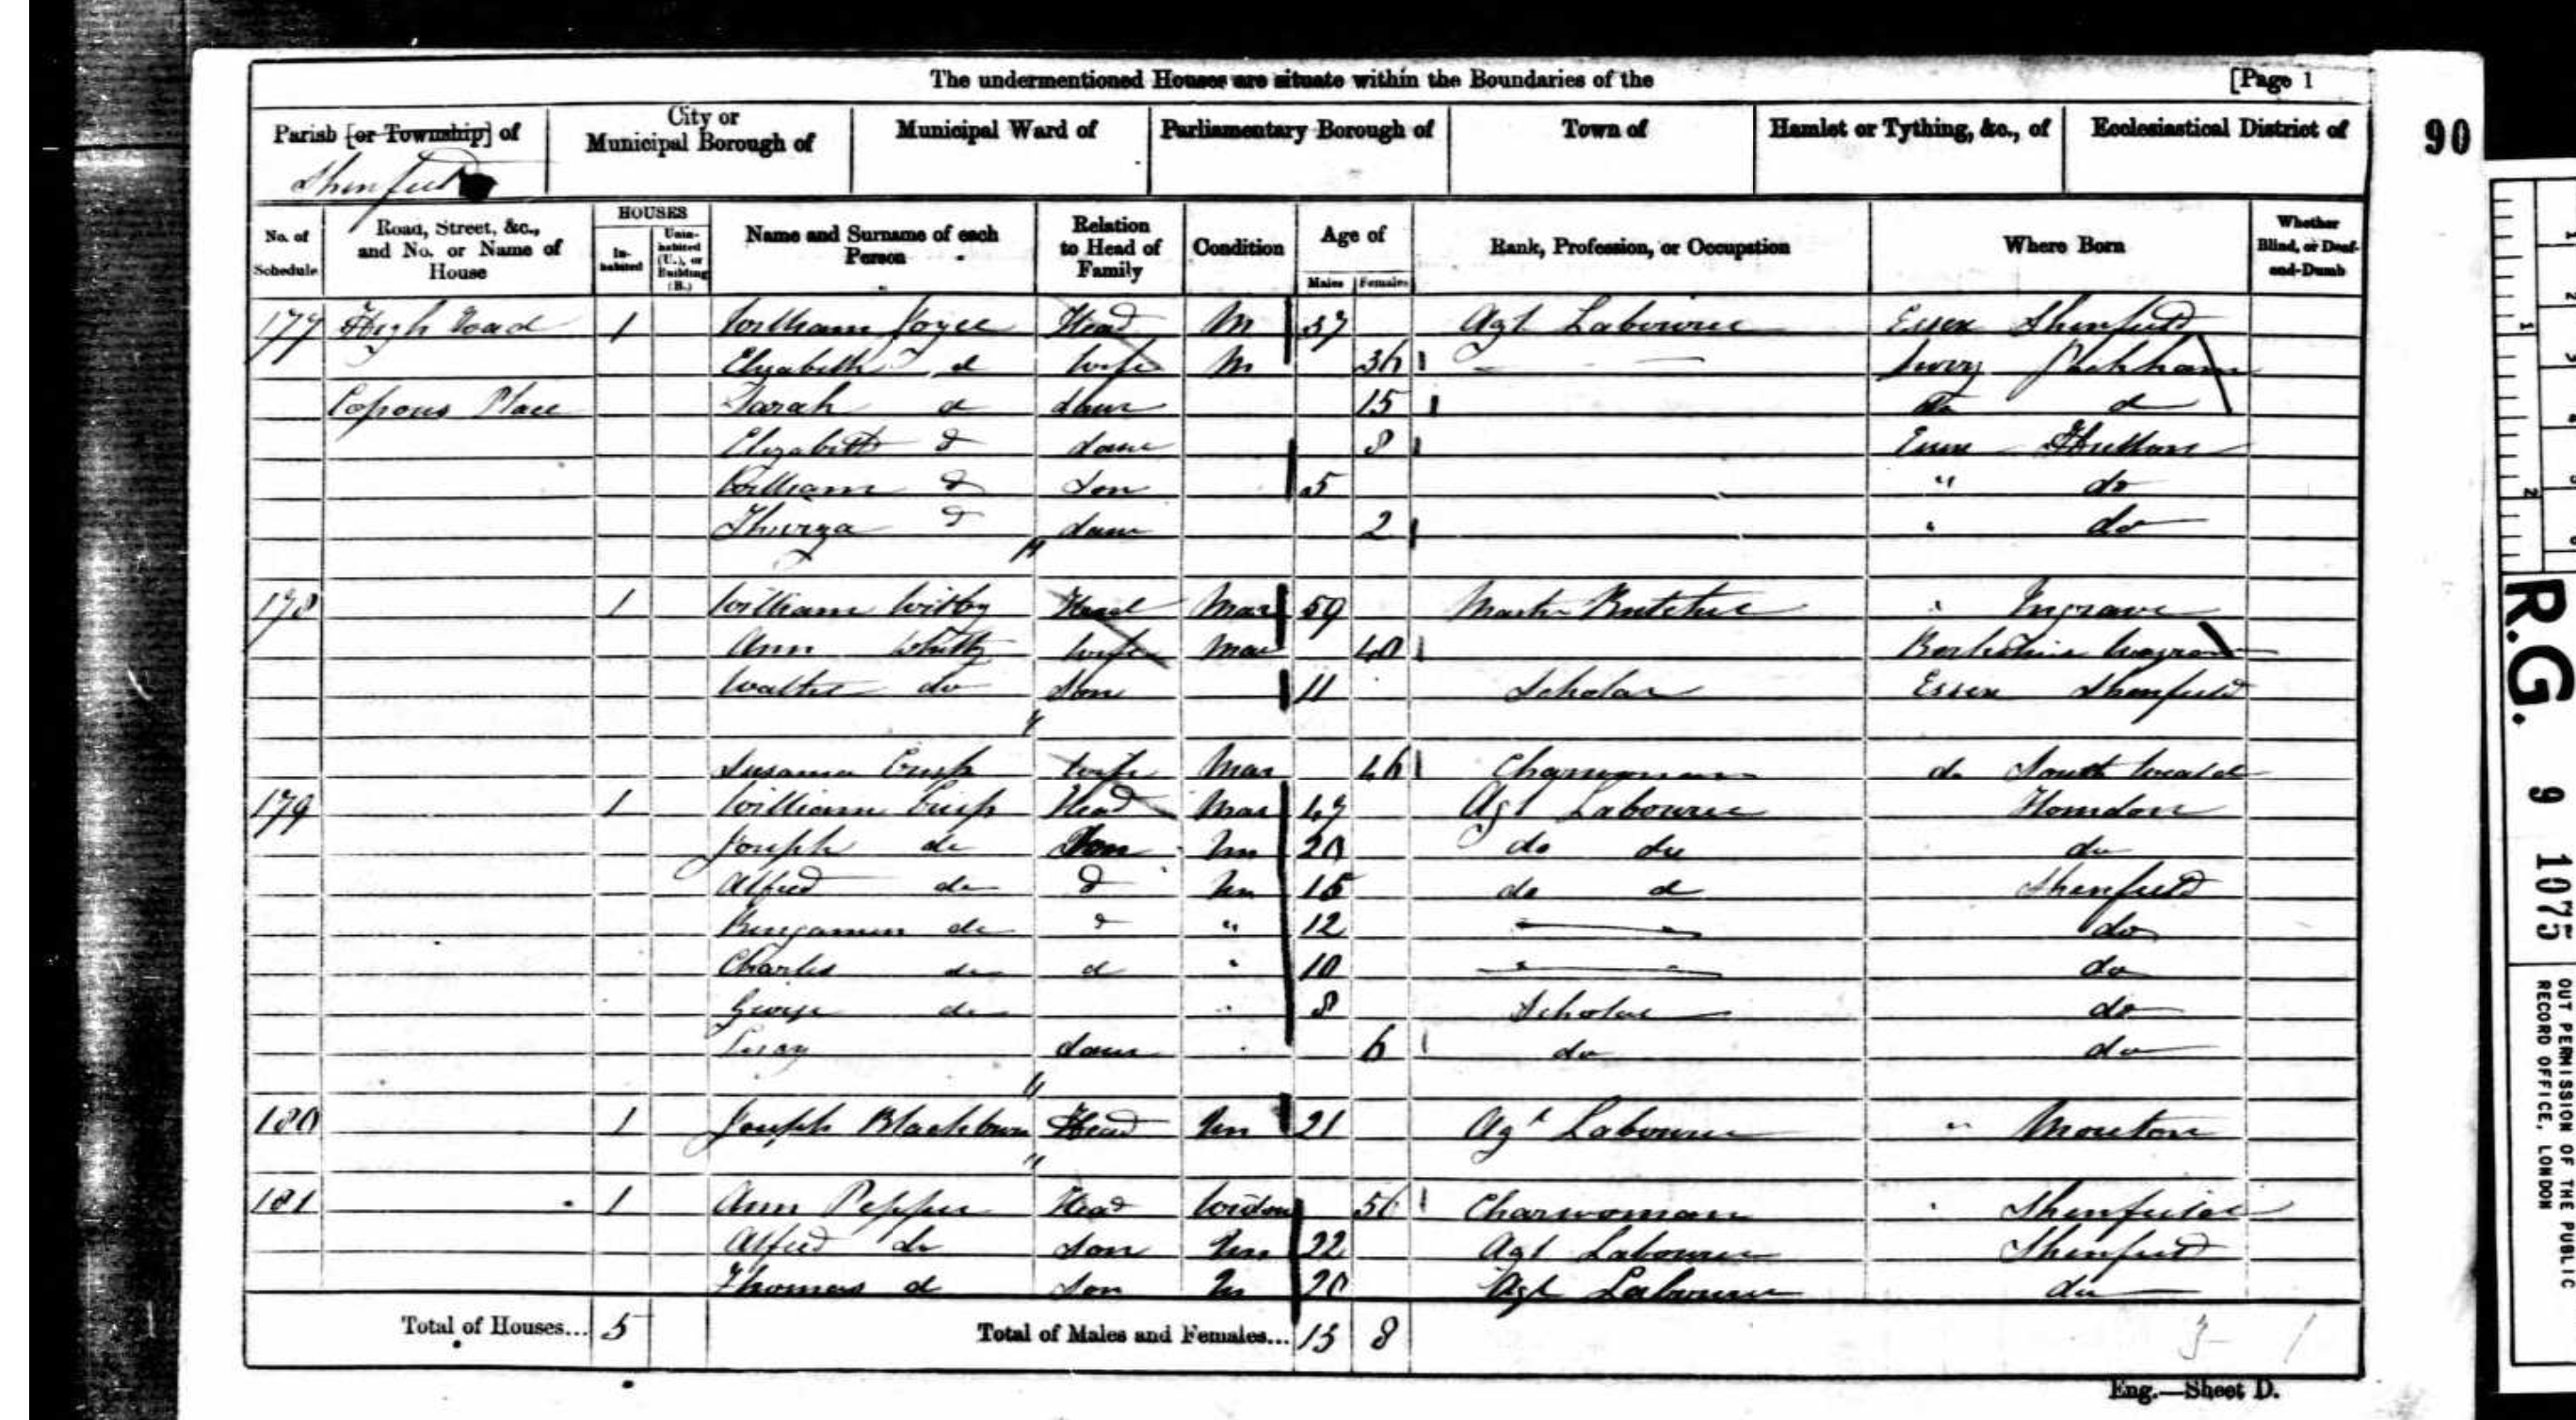 The undermentioned Houses are situate within the Boundaries of the [Page 1
Parish [or Township] of City or Municipal Borough of Municipal Ward of Parliamentary Borough of Town of Hamlet or Tything, &c., of Ecclesiastical District of
90
Shenfield
No. of Schedule Road, Street, &c., and No. or Name of House HOUSES Inhabited Uninhabited (U.), or Building (B.) Name and Surname of each Person Relation to Head of Family Condition Age of Males Females Rank, Profession, or Occupation Where Born Whether Blind, or Deaf-and-Dumb
177 High Road 1 William Joyce Head M 37 Agl Labourer Essex Shenfield
Elizabeth d wife M 36 Surry Peckham
Place Sarah d daur 15 do d
Elizabeth d daur 8 Essex Hutton
William d Son 5 " do
Thurza d daur 2 " do
178 1 William Head Mar 59 Master Butcher " Ingrave
Ann wife Mar 40 Berkshire
Walter do Son 11 Scholar Essex Shenfield
Susanna Crisp wife Mar 46 Charwoman do South Weald
179 1 William Crisp Head Mar 47 Agl Labourer
Joseph do Son Un 20 do do do
Alfred do d Un do d Shenfield
Benjamin do d " 12 do
Charles do d " 10 do
George do 8 Scholar do
daur 6 do do
180 1 Joseph Blackburn Head Un 21 Agl Labourer "
181 1 Ann Pepper Head Widow Charwoman " Shenfield
Alfred do Son Un 22 Agl Labourer Shenfield
Thomas d Son Un 20 Agl Labourer do
Total of Houses... 5 Total of Males and Females... 15 8
Eng.—Sheet D.
R.G. 9 1075
OUT PERMISSION OF THE PUBLIC
RECORD OFFICE, LONDON